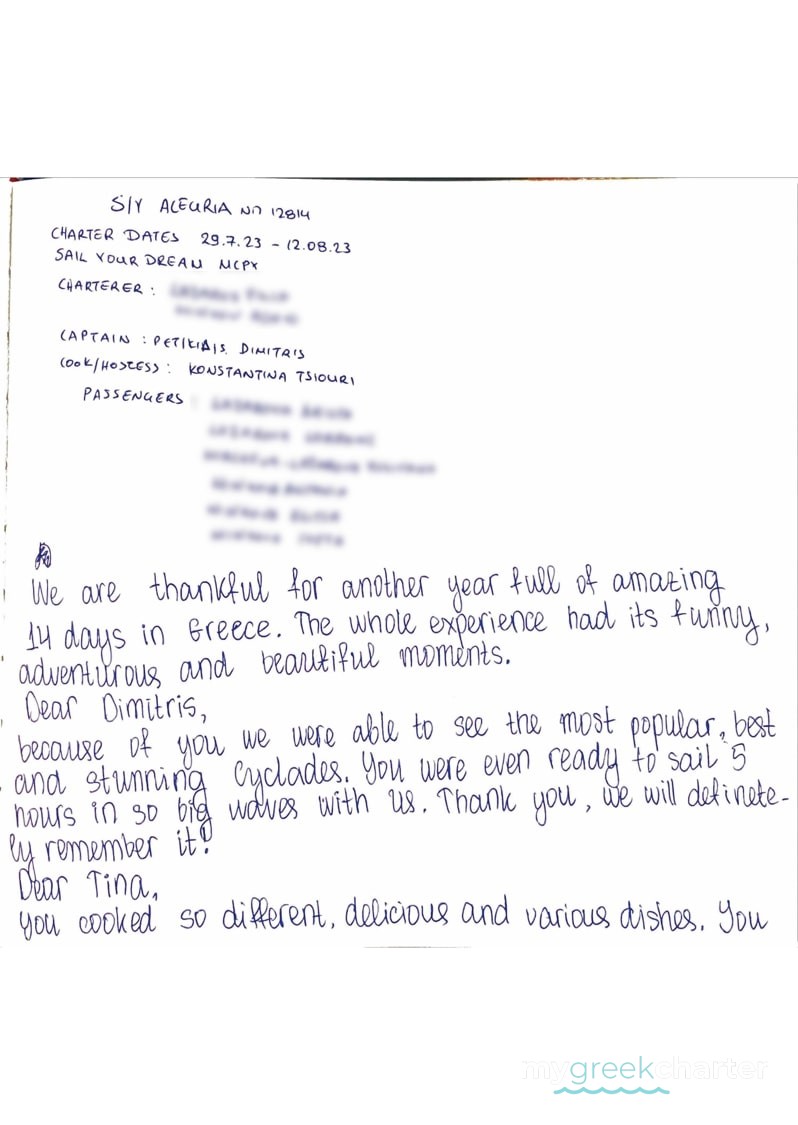 S/Y ALEGRIA NП 12814
CHARTER DATES 29.7.23 - 12.08.23
SAIL YOUR DREAM MCPY
CHARTERER :
CAPTAIN : DIMITRIS
COOK/HOSTESS : KONSTANTINA TSIOURI
PASSENGERS :
We are thankful for another year full of amazing
14 days in Greece. The whole experience had its funny,
adventurous and beautiful moments.
Dear Dimitris,
because of you we were able to see the most popular, best
and stunning Cyclades. You were even ready to sail 5
hours in so big waves with us. Thank you, we will definete-
ly remember it!
Dear Tina,
you cooked so different, delicious and various dishes. You
mygreekcharter